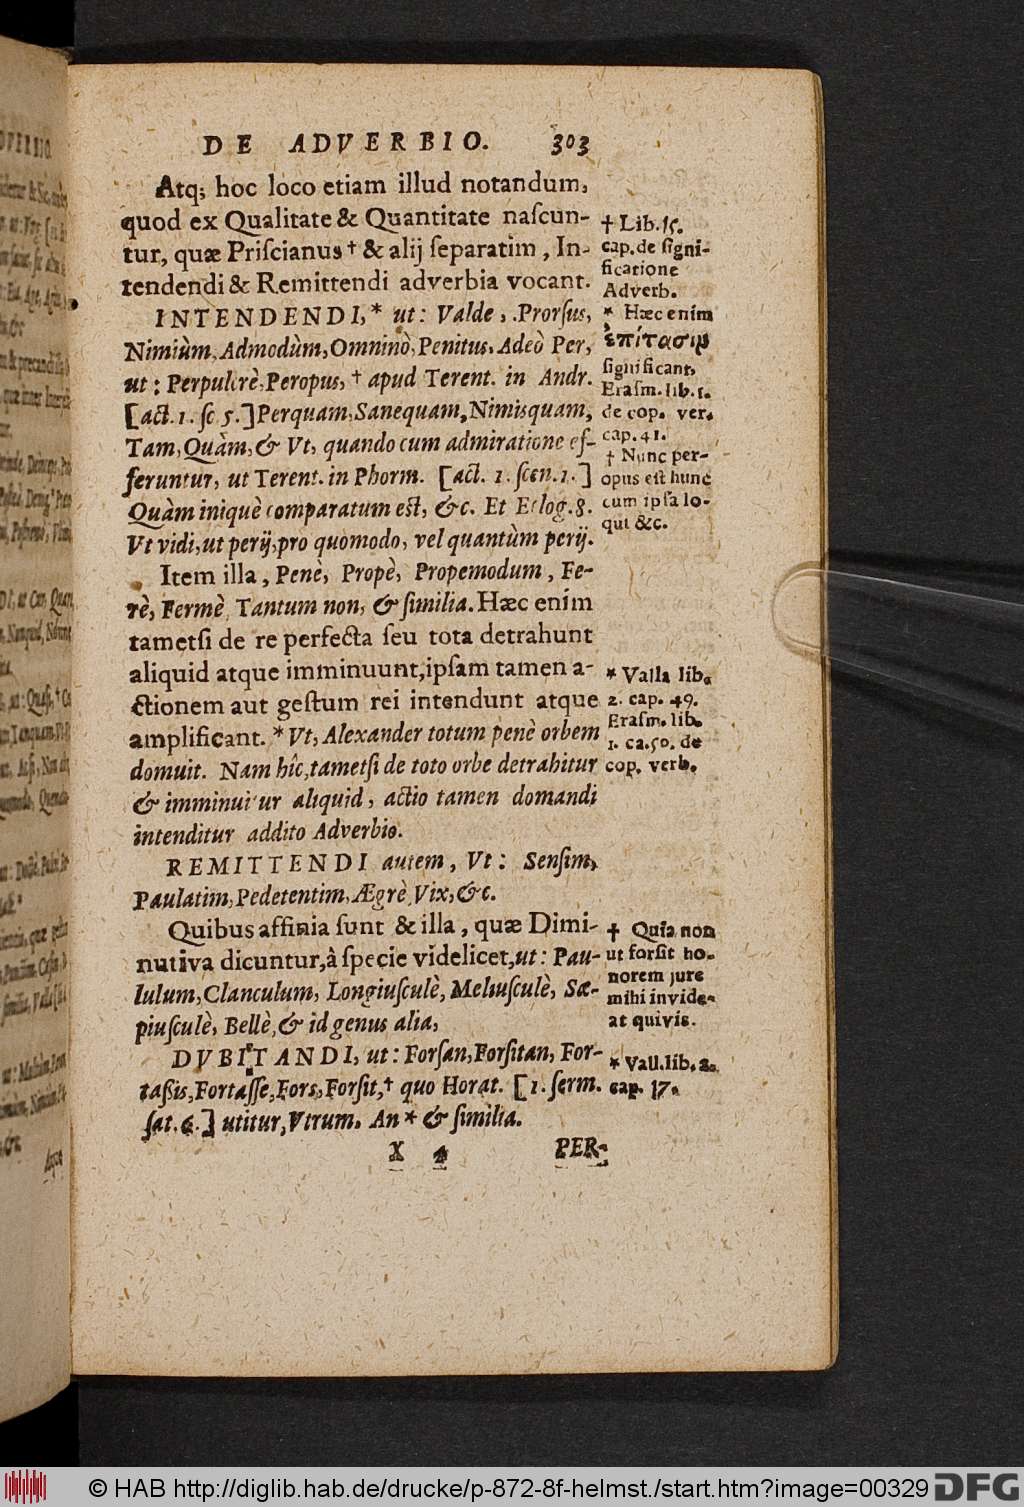 DE ADVERBIO. 303
Atq; hoc loco etiam illud notandum,
quod ex Qualitate & Quantitate naſcun-
tur, quæ Priſcianus † & alij ſeparatim, In-
tendendi & Remittendi adverbia vocant.
INTENDENDI,* ut: Valde, Prorſus,
Nimiùm, Admodùm, Omninò, Penitus, Adeò Per,
ut: Perpulcrè, Peropus, † apud Terent. in Andr.
[act. 1. ſc 5.] Perquam, Sanequam, Nimisquam,
Tam, Quàm, & Vt, quando cum admiratione ef-
feruntur, ut Terent. in Phorm. [act. 1. ſcen. 1.]
Quàm iniquè comparatum eſt, &c. Et Eclog. 8.
Vt vidi, ut perij, pro quomodo, vel quantùm perij.
Item illa, Penè, Propè, Propemodum, Fe-
rè, Fermè, Tantum non, & ſimilia. Hæc enim
tametſi de re perfecta ſeu tota detrahunt
aliquid atque imminuunt, ipſam tamen a-
ctionem aut geſtum rei intendunt atque
amplificant. * Vt, Alexander totum penè orbem
domuit. Nam hîc, tametſi de toto orbe detrahitur
& imminuitur aliquid, actio tamen domandi
intenditur addito Adverbio.
REMITTENDI autem, Vt: Senſim,
Paulatim, Pedetentim, Ægrè, Vix, &c.
Quibus affinia ſunt & illa, quæ Dimi-
nutiva dicuntur, à ſpecie videlicet, ut: Pau-
lulum, Clanculum, Longiuſculè, Meliuſculè, Sæ-
piuſculè, Bellè, & id genus alia,
DVBITANDI, ut: Forſan, Forſitan, For-
taßis, Fortaſſe, Fors, Forſit, † quo Horat. [1. ſerm.
ſat. 6.] utitur, Vtrum. An * & ſimilia.
X 4 PER-
† Lib. 15.
cap. de ſigni-
ficatione
Adverb.
* Hæc enim
ἐπίτασιν
ſignificant,
Eraſm. lib. 1.
de cop. ver.
cap. 41.
† Nunc per-
opus eſt hunc
cum ipſa lo-
qui &c.
* Valla lib.
2. cap. 49.
Eraſm. lib.
1. ca. 50. de
cop. verb.
† Quia non
ut forſit ho-
norem jure
mihi invide-
at quivis.
* Vall. lib. 2.
cap. 17.
© HAB http://diglib.hab.de/drucke/p-872-8f-helmst./start.htm?image=00329
DFG